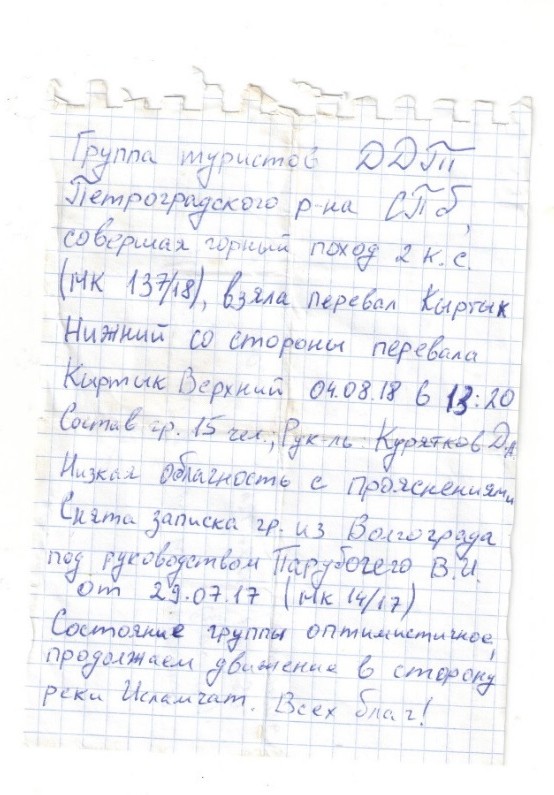 Группа туристов ДДТ
Петроградского р-на СПб,
совершая горный поход 2 к.с.
(МК 137/18), взяла перевал Кыртык
Нижний со стороны перевала
Кыртык Верхний 04.08.18 в 13:20
Состав гр. 15 чел.; Рук-ль: Курятков Д.А.
Низкая облачность с прояснениями
Снята записка гр. из Волгограда
под руководством Парубочего В.И.
от 29.07.17 (МК 14/17)
Состояние группы оптимистичное,
продолжаем движение в сторону
реки Исламчат. Всех благ!